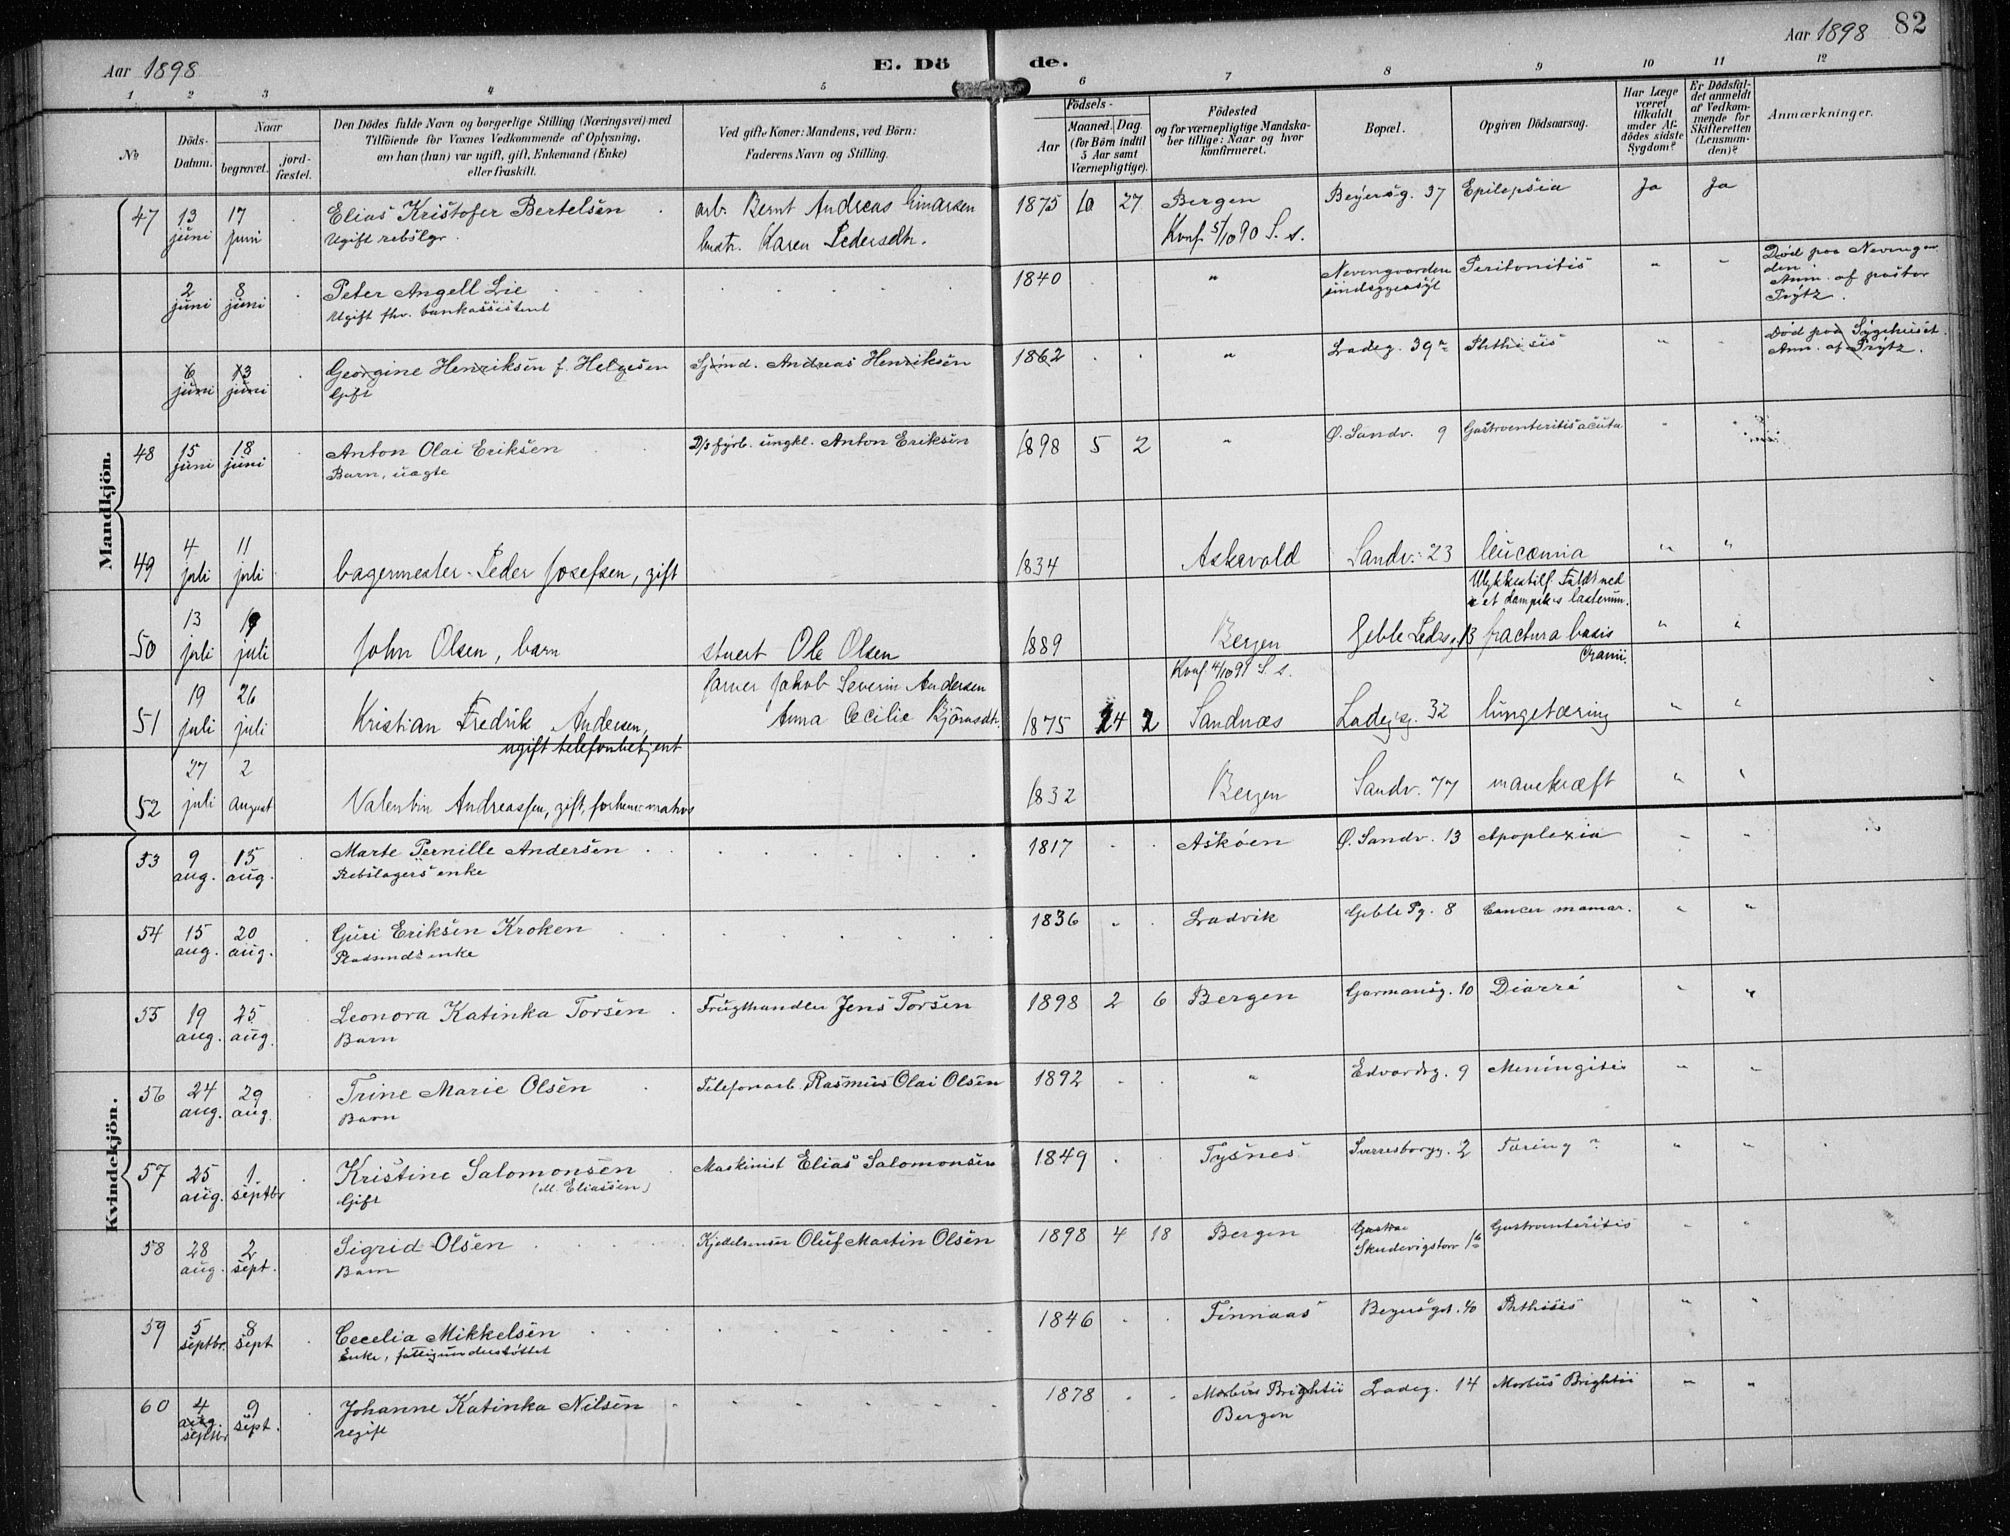 Aar 1898
E. Dö de.
Aar 1898
82
1 2 3 4 5 6 7 8 9 10 11 12
No
Döds-Datum.
Naar
begravet.
jord-fæstet.
Den Dödes fulde Navn og borgerlige Stilling (Næringsvei) med
Tilföiende for Voxnes Vedkommende af Oplysning,
om han (hun) var ugift, gift, Enkemand (Enke)
eller fraskilt.
Ved gifte Koner: Mandens, ved Börn:
Faderens Navn og Stilling.
Födsels-
Aar
Maaned. Dag.
(for Börn indtil
5 Aar samt
Værnepligtige).
Födested
og for værnepligtige Mandska-
ber tillige: Naar og hvor
konfirmeret.
Bopæl.
Opgiven Dödsaarsag.
Har Læge
været
tilkaldt
under Af-
dödes sidste
Sygdom?
Er Dödsfal-
det anmeldt
af Vedkom-
mende for
Skifteretten
(Lensman-
den)?
Anmærkninger.
Mandkjön.
47 13 juni 17 juni Elias Kristofer Bertelsen arb. Bernt Andreas Einarsen 1875 10 27 Bergen Beyersg. 37 Epilepsia Ja Ja
Ugift rebslgr. hustr. Karen Pedersdtr. Konf 5/10 90 S. s.
2 juni 8 juni Peter Angell Lie 1840 " Nevengaarden Peritonitis " " Död paa Nevengaar
Ugift fhv. bankassistent sindssygeasyl den
Anm. af pastor
Prytz.
6 juni 13 juni Georgine Henriksen f. Helgesen Sjömd. Andreas Henriksen 1862 " Ladeg. 39a Phthisis " " Död paa Sygehuset.
Gift Anm. af Prytz.
48 15 juni 18 juni Anton Olai Eriksen D/s fyrb. ungkl. Anton Eriksen 1898 5 2 " Ø. Sandv. 9 Gastroenteritis acuta " "
Barn, uægte
49 4 juli 11 juli bagermester Peder Josefsen, gift 1834 Askevold Sandv. 23 leucæmia " "
Ulykkestilf. Faldt ned
i et dampsk-s lasterum.
50 13 juli 19 juli John Olsen, barn stuert Ole Olsen 1889 Bergen Geble Pedrsg. 13 fractura basis " "
cranii.
51 19 juli 26 juli Kristian Fredrik Andersen, Jakob Severin Andersen 1875 4 2 Konf 4/10 91 S. s. Sandnæs Ladegsg. 32 lungetæring " "
ugift telefonbetjent Anna Cecilie Björnsdtr.
52 27 juli 2 august Valentin Andreassen, gift, forhenv. matros 1832 Bergen Sandv. 77 mavekræft " "
Kvindekjön.
53 9 aug. 15 aug. Marte Pernille Andersen 1817 Askøen Ø. Sandv. 13 Apoplexia " "
Rebslagers enke
54 15 aug. 20 aug. Guri Eriksen Kroken 1836 Ladvik Geble Pg. 8 Cancer mamar. " "
Pladsmds enke
55 19 aug. 25 aug. Leonora Katinka Torsen Frugthandler Jens Torsen 1898 2 6 Bergen Garmansg. 10 Diarré " "
Barn
56 24 aug. 29 aug. Trine Marie Olsen Telefonarb. Rasmus Olai Olsen 1892 " Edvardsg. 9 Meningitis " "
Barn
57 25 aug. 1 septbr Kristine Salomonsen Maskinist Elias Salomonsen 1849 Tysnes Sverresborgg. 2 Tæring " "
(M. Eliassen)
Gift
58 28 aug. 2 sept. Sigrid Olsen Kjedelrenser Oluf Martin Olsen 1898 4 18 Bergen Skudevigstorv 1b Gastroenteritis " "
Barn
59 5 septbr. 8 sept Cecelia Mikkelsen 1846 Finnaas Beyersgd. 40 Phthisis " "
Enke, fattigunderstøttet
60 4 aug. septbr 9 sept. Johanne Katinka Nilsen 1878 Morbus Brightii Bergen Ladeg. 14 Morbus Brightii " "
ugift